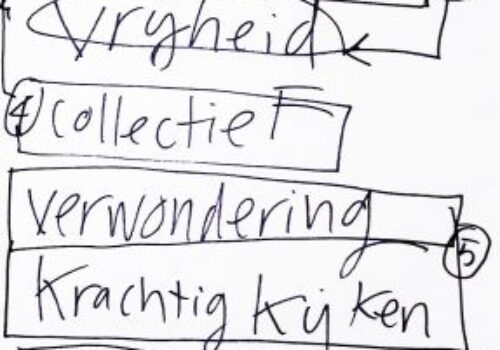 Vryheid
④ collectief
verwondering ⑤
Krachtig Kijken